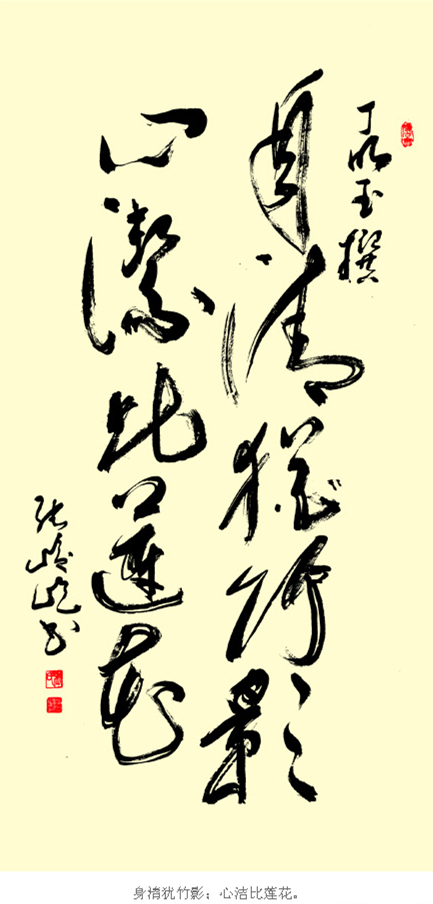 丁玉撰
身清猶竹影
心潔比蓮花
张书
身清犹竹影；心洁比莲花。